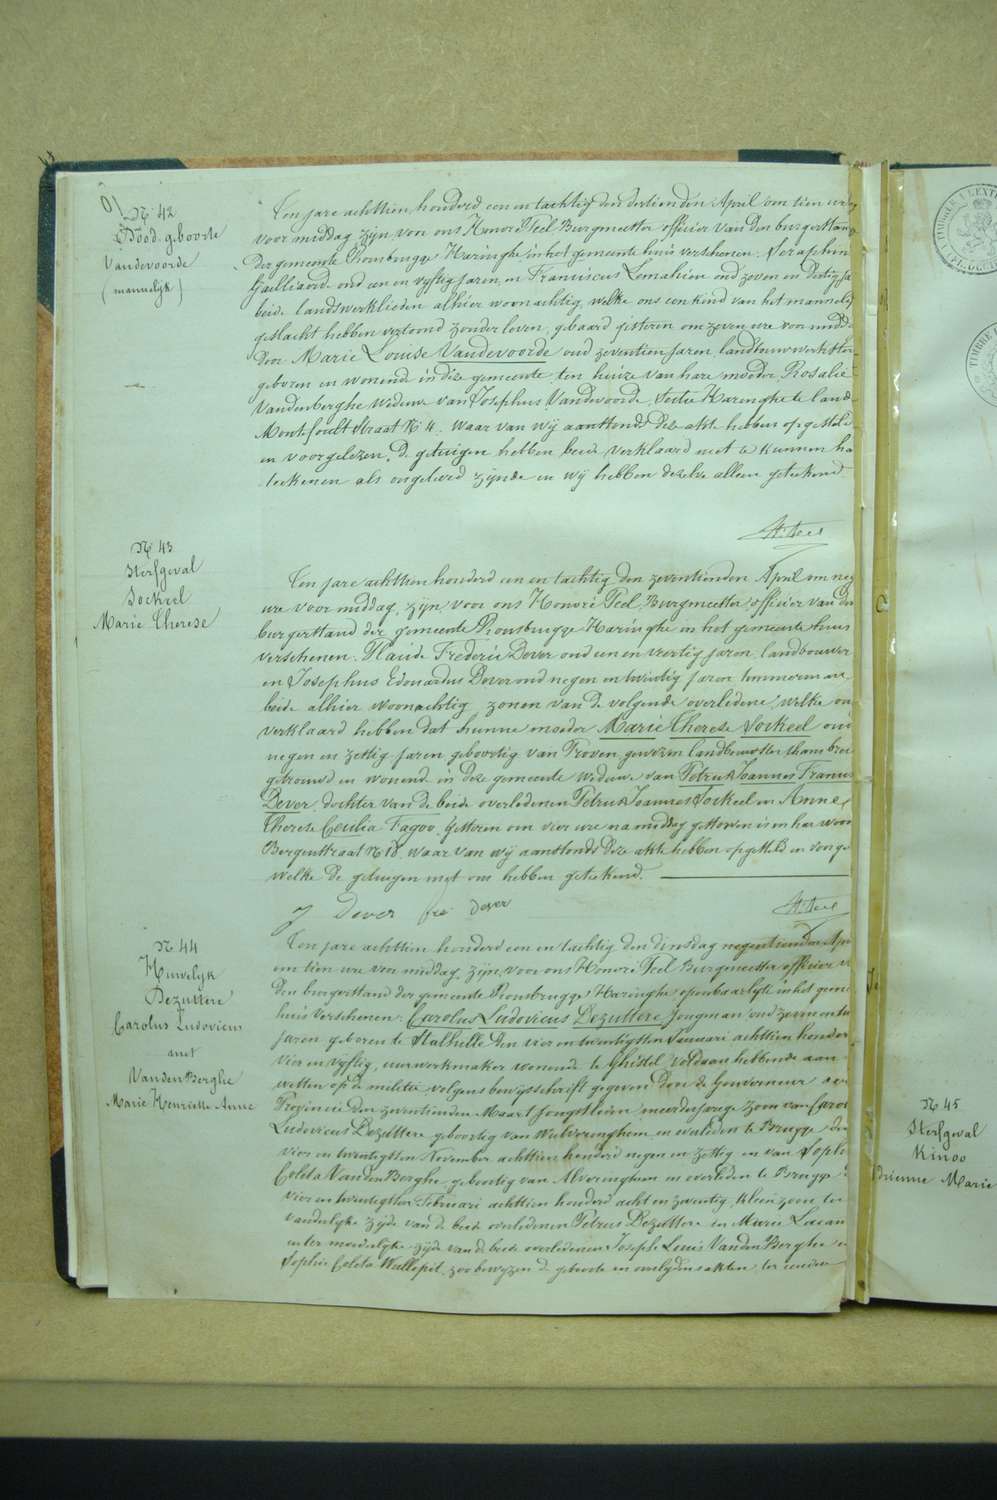 10
N° 42
Dood geboorte
Vandevoorde
(mannelijk)
Ten jare achttien honderd een en tachtig den dertienden April om tien ure
voor middag zijn voor ons Honoré Teel Burgmeester officier van den burgerstand
der gemeente Rousbrugge Haringhe in het gemeente huis verschenen: Seraphin
Gailliaerde oud een en vijftig jaren, en Franciscus Lemahieu oud zeven en dertig ja
beide landswerklieden alhier woonachtig, welke ons een kind van het mannelij
geslacht hebben vertoond zonder leven, gebaard gisteren om zeven ure voor midda
door Marie Louise Vandevoorde oud zeventien jaren, landbouwwerkster
geboren en wonende in deze gemeente, ten huize van hare moeder Rosalie
Vandenberghe weduwe van Josephus Vandevoorde, Sectie Haringhe te lande
straat N° 4. Waar van wij aanstonds deze akte hebben opgesteld
en voorgelezen. De getuigen hebben beide verklaard niet te kunnen ha
teekenen als ongeleerd zijnde en wij hebben dezelve alleen geteekend.
H. Teel
N° 43
Sterfgeval
Sockeel
Marie Therese
Ten jare achttien honderd een en tachtig den zeventienden April om neg
ure voor middag, zijn voor ons Honoré Teel, Burgmeester, officier van den
burgerstand der gemeente Rousbrugge Haringhe in het gemeente huis
verschenen: Frederic Dever oud een en veertig jaren landbouwer
en Josephus Edouardus Dever oud negen en twintig jaren timmerman,
beide alhier woonachtig, zonen van de volgende overledene, welke on
verklaard hebben dat hunne moeder Marie Therese Sockeel oud
negen en zestig jaren, geboortig van Proven, gewezen landbouwster thans brei
getrouwd en wonend in deze gemeente weduwe van Petrus Joannes Francis
Dever, dochter van de beide overledenen Petrus Joannes Sockeel en Anne
Therese Cecilia Fagoo, gisteren om vier ure na middag gestorven is en har woon
Bergenstraat N° 18, waar van wij aanstonds deze akte hebben opgesteld en voorge
welke de getuigen met ons hebben geteekend.
J Dever fré Dever H. Teel
N° 44
Huwelijk
Dezuttere
Carolus Ludovicus
met
VandenBerghe
Marie Henriette Anne
Ten jare achttien honderd een en tachtig den dinsdag negentienden Apr
om tien ure voor middag, zijn voor ons Honoré Teel Burgmeester officier v
den burgerstand der gemeente Rousbrugge Haringhe openbaarlijk in het geme
huis verschenen: Carolus Ludovicus Dezuttere Jongman oud zeven en tw
jaren geboren te Stalhille den vier en twintigsten Januari achttien honder
vier en vijftig, uurwerkmaker wonende te Ghistel voldaan hebbende aan
wetten op de militie volgens bewijsschrift gegeven door de Gouverneur
Provincie den zeventienden Maart jongstleden, meerderjarige zoon van Caro
Ludovicus Dezuttere geboortig van Wulveringhem en overleden te Brugge den
vier en twintigsten November achttien honderd negen en zestig en van Soph
Coleta VandenBerghe geboortig van Alveringhem en overleden te Brugge
vier en twintigsten Februari achttien honderd acht en zeventig, kleinzoon ter
vaderlijke zijde van de beide overledenen Petrus Dezuttere en Marie
en ter moederlijke zijde van de beide overledenen Joseph Louis VandenBerghe e
Sophie Coleta Wullepit, zoo bewijzen de geboorte en overlijdensakten ter
N° 45
Sterfgeval
Kinoo
drienne Marie